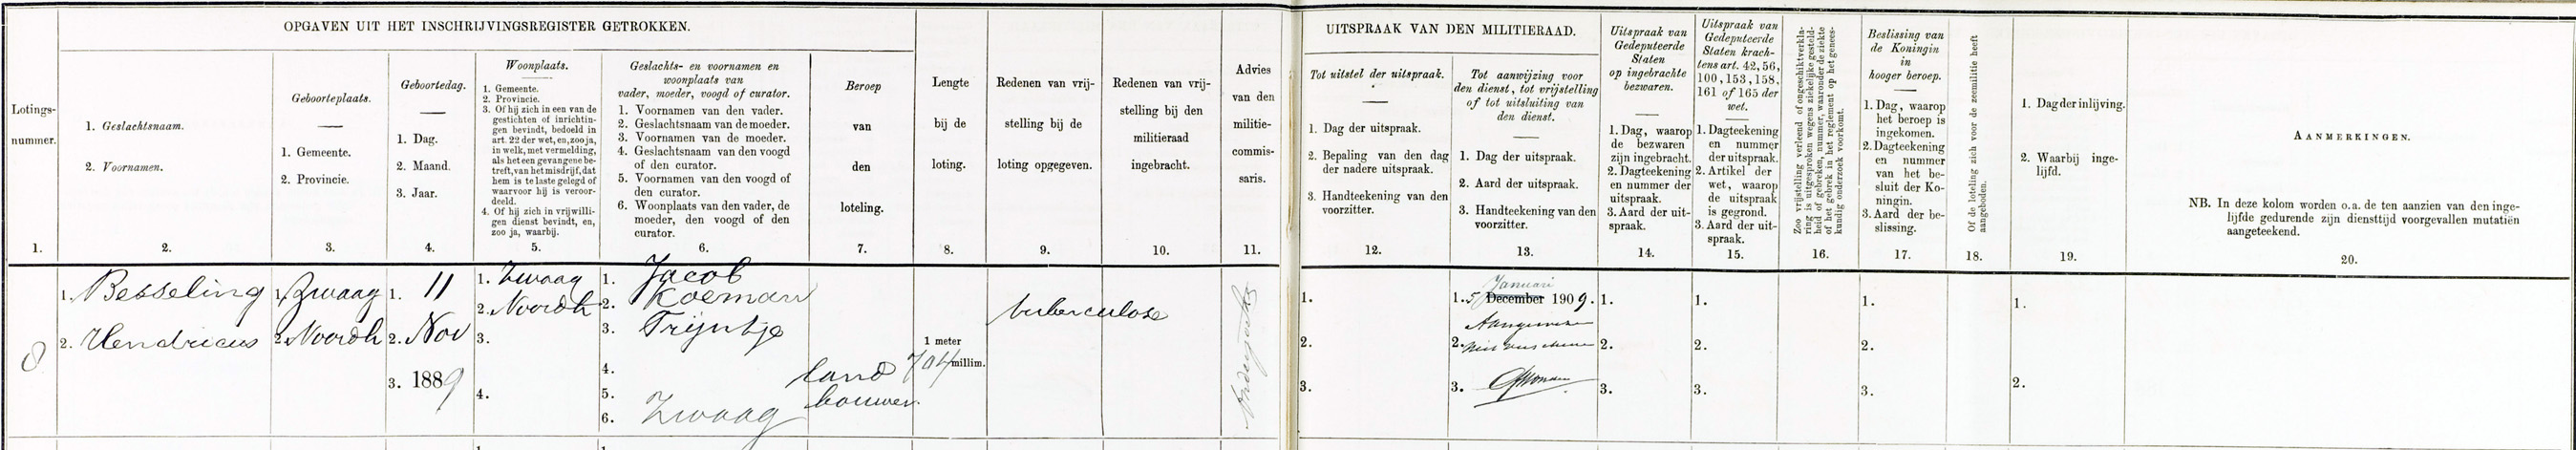 OPGAVEN UIT HET INSCHRIJVINGSREGISTER GETROKKEN.
Lotings-
nummer.
1.
1. Geslachtsnaam.
2. Voornamen.
2.
Geboorteplaats.
1. Gemeente.
2. Provincie.
3.
Geboortedag.
1. Dag.
2. Maand.
3. Jaar.
4.
Woonplaats.
1. Gemeente.
2. Provincie.
3. Of hij zich in een van de
gestichten of inrichtin-
gen bevindt, bedoeld in
art. 22 der wet, en, zoo ja,
in welk, met vermelding,
als het een gevangene be-
treft, van het misdrijf, dat
hem is te laste gelegd of
waarvoor hij is veroor-
deeld.
4. Of hij zich in vrijwilli-
gen dienst bevindt, en,
zoo ja, waarbij.
5.
Geslachts- en voornamen en
woonplaats van
vader, moeder, voogd of curator.
1. Voornamen van den vader.
2. Geslachtsnaam van de moeder.
3. Voornamen van de moeder.
4. Geslachtsnaam van den voogd
of den curator.
5. Voornamen van den voogd of
den curator.
6. Woonplaats van den vader, de
moeder, den voogd of den
curator.
6.
Beroep
van
den
loteling.
7.
Lengte
bij de
loting.
8.
Redenen van vrij-
stelling bij de
loting opgegeven.
9.
Redenen van vrij-
stelling bij den
militieraad
ingebracht.
10.
Advies
van den
militie-
commis-
saris.
11.
UITSPRAAK VAN DEN MILITIERAAD.
Tot uitstel der uitspraak.
1. Dag der uitspraak.
2. Bepaling van den dag
der nadere uitspraak.
3. Handteekening van den
voorzitter.
12.
Tot aanwijzing voor
den dienst, tot vrijstelling
of tot uitsluiting van
den dienst.
1. Dag der uitspraak.
2. Aard der uitspraak.
3. Handteekening van den
voorzitter.
13.
Uitspraak van
Gedeputeerde
Staten
op ingebrachte
bezwaren.
1. Dag, waarop
de bezwaren
zijn ingebracht.
2. Dagteekening
en nummer der
uitspraak.
3. Aard der uit-
spraak.
14.
Uitspraak van
Gedeputeerde
Staten krach-
tens art. 42, 56,
100, 153, 158,
161 of 165 der
wet.
1. Dagteekening
en nummer
der uitspraak.
2. Artikel der
wet, waarop
de uitspraak
is gegrond.
3. Aard der uit-
spraak.
15.
Zoo vrijstelling verleend of ongeschiktverkla-
ring is uitgesproken wegens ziekelijke gesteld-
heid of gebreken, nummer, waaronder de ziekte
of het gebrek in het reglement op het genees-
kundig onderzoek voorkomt.
16.
Beslissing van
de Koningin
in
hooger beroep.
1. Dag, waarop
het beroep is
ingekomen.
2. Dagteekening
en nummer
van het be-
sluit der Ko-
ningin.
3. Aard der be-
slissing.
17.
Of de loteling zich voor de zeemilitie heeft
aangeboden.
18.
1. Dag der inlijving.
2. Waarbij inge-
lijfd.
19.
AANMERKINGEN.
NB. In deze kolom worden o.a. de ten aanzien van den inge-
lijfde gedurende zijn diensttijd voorgevallen mutatiën
aangeteekend.
20.
8
1. Besseling
2. Hendricus
1. Zwaag
2. Noordh
1. 11
2. Nov
3. 1889
1. Zwaag
2. Noordh
3.
4.
1. Jacob
2. Koeman
3. Trijntje
4.
5.
6. Zwaag
land
bouwer
1 meter
704 millim.
tuberculose
1.
2.
3.
Januari
1. 5 December 1909.
Aangewezen
2. Niet verschenen
3.
1.
2.
3.
1.
2.
3.
1.
2.
3.
1.
2.